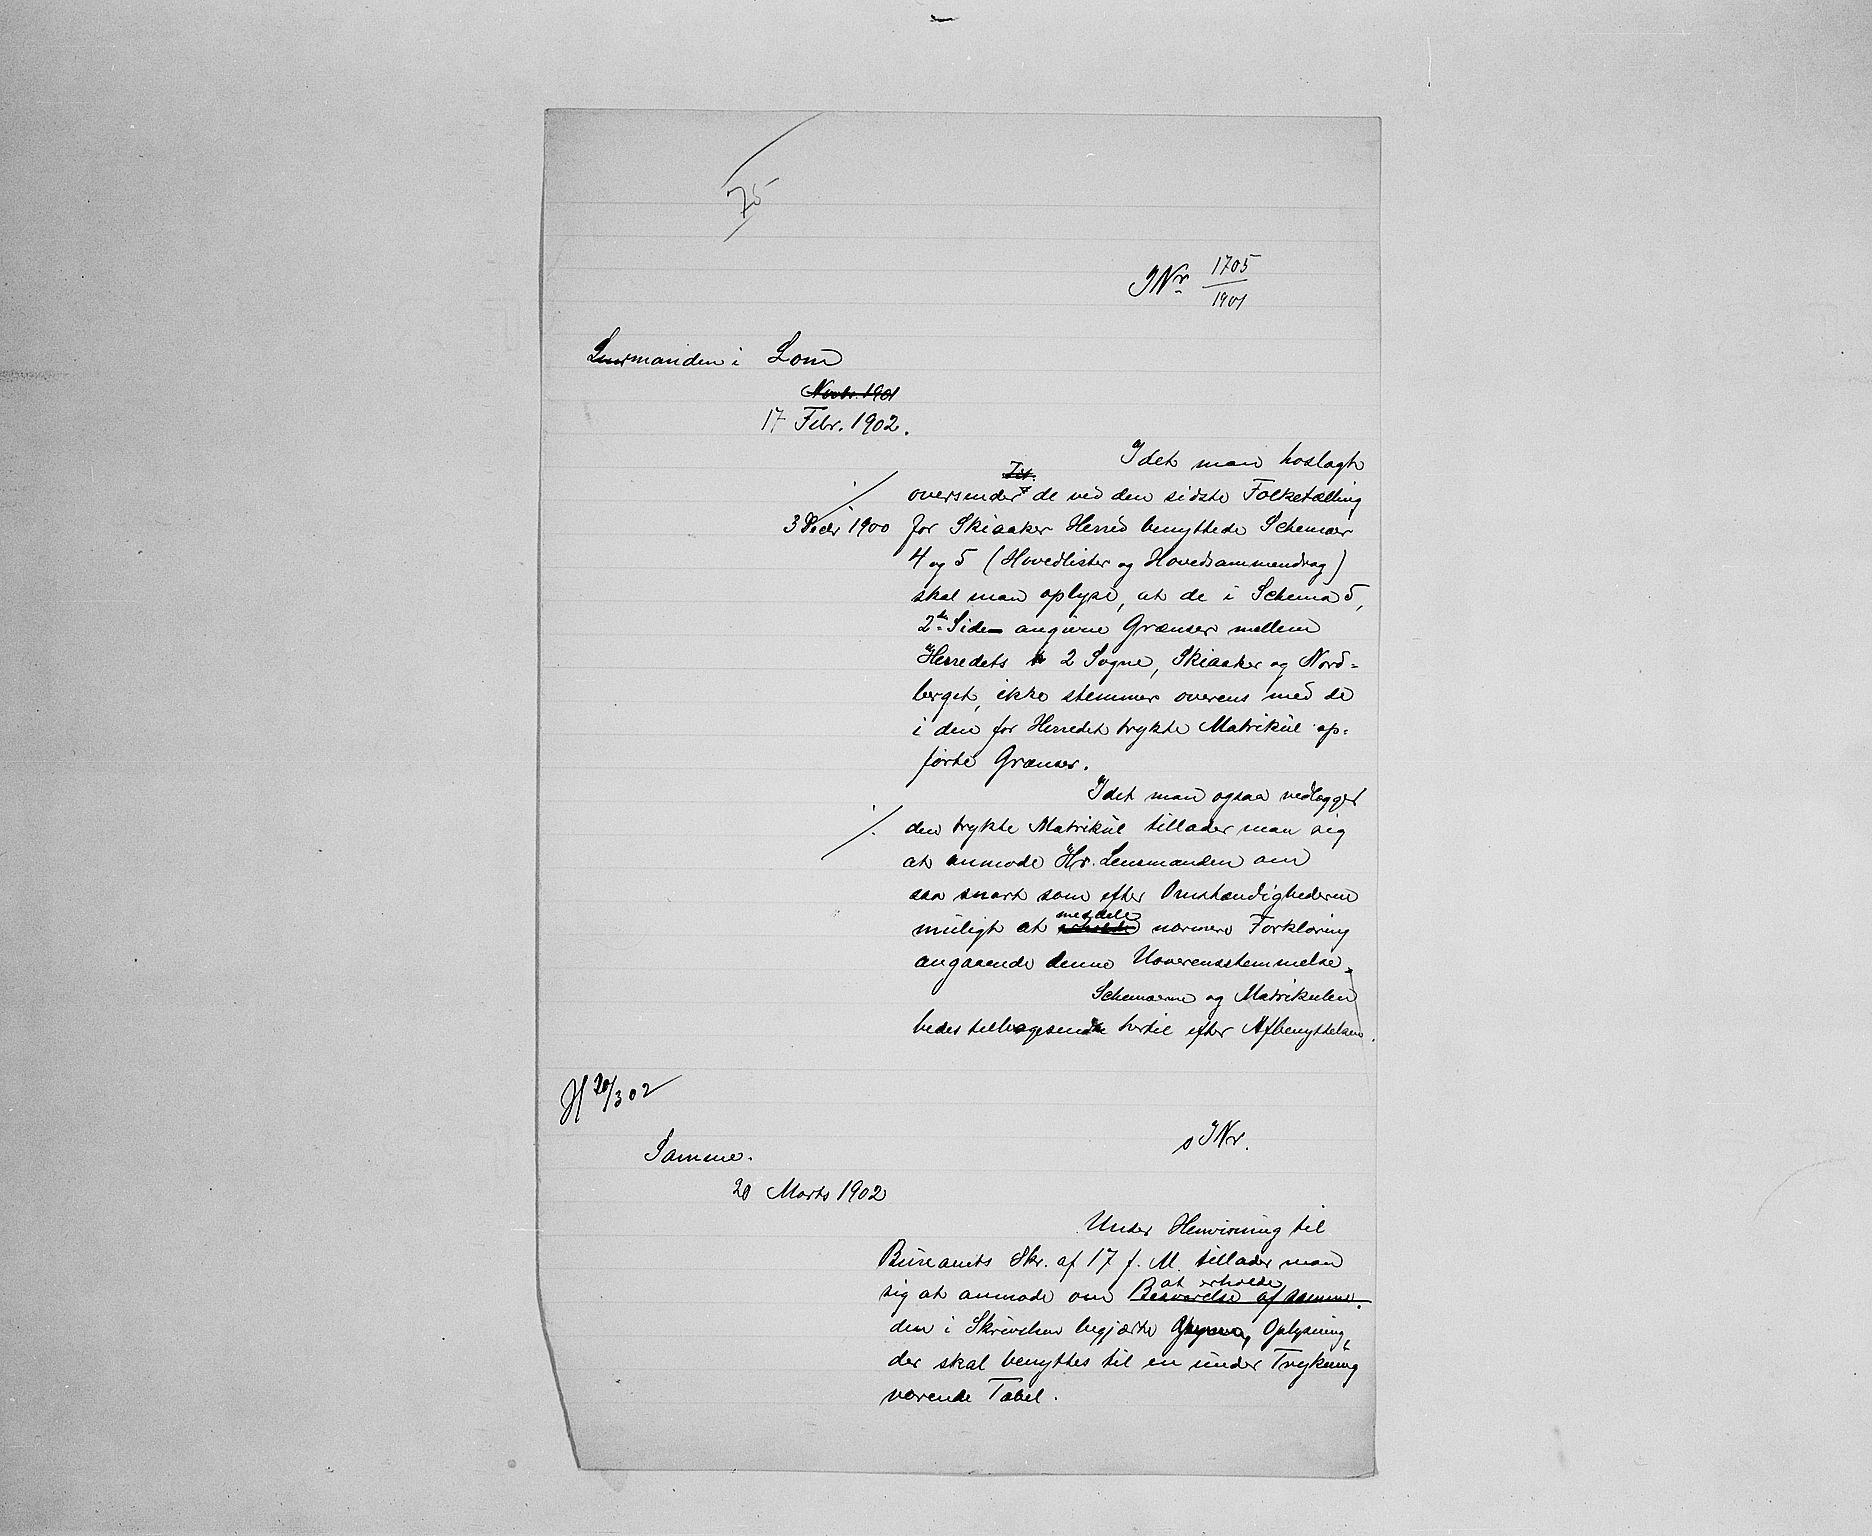 75
JNr 1705/1901
Lensmanden i Lom
Novbr. 1901
17 Febr. 1902.
Idet man hoslagt
oversender de ved den sidste Folketælling
3 Decbr 1900 for Skiaaker Herred benyttede Schemaer
4 og 5 (Hovedlister og Hovedsammendrag)
skal man oplyse, at de i Schema 5,
2den Side angivne Grænser mellem
Herredets 2 Sogne, Skiaaker og Nord-
berget, ikke stemmer overens med de
i den for Herredet trykte Matrikul op-
førte Grænser.
Idet man ogsaa vedlægger
den trykte Matrikul tillader man sig
at anmode Hr. Lensmanden om
saa snart som efter Omstændighederne
muligt at meddele nærmere Forklaring
angaaende denne Uoverensstemmelse.
Schemaerne og Matrikulen
bedes tilbagesendte hertil efter Afbenyttelsen.
H 20/3 02
s JNr.
Samme.
20 Marts 1902
Under Henvisning til
Bureauets Skr. af 17 f. M. tillader man
at erholde
sig at anmode om Besvarelse af samme.
den i Skrivelsen begjærte Oplysning,
der skal benyttes til en under Trykning
værende Tabel.